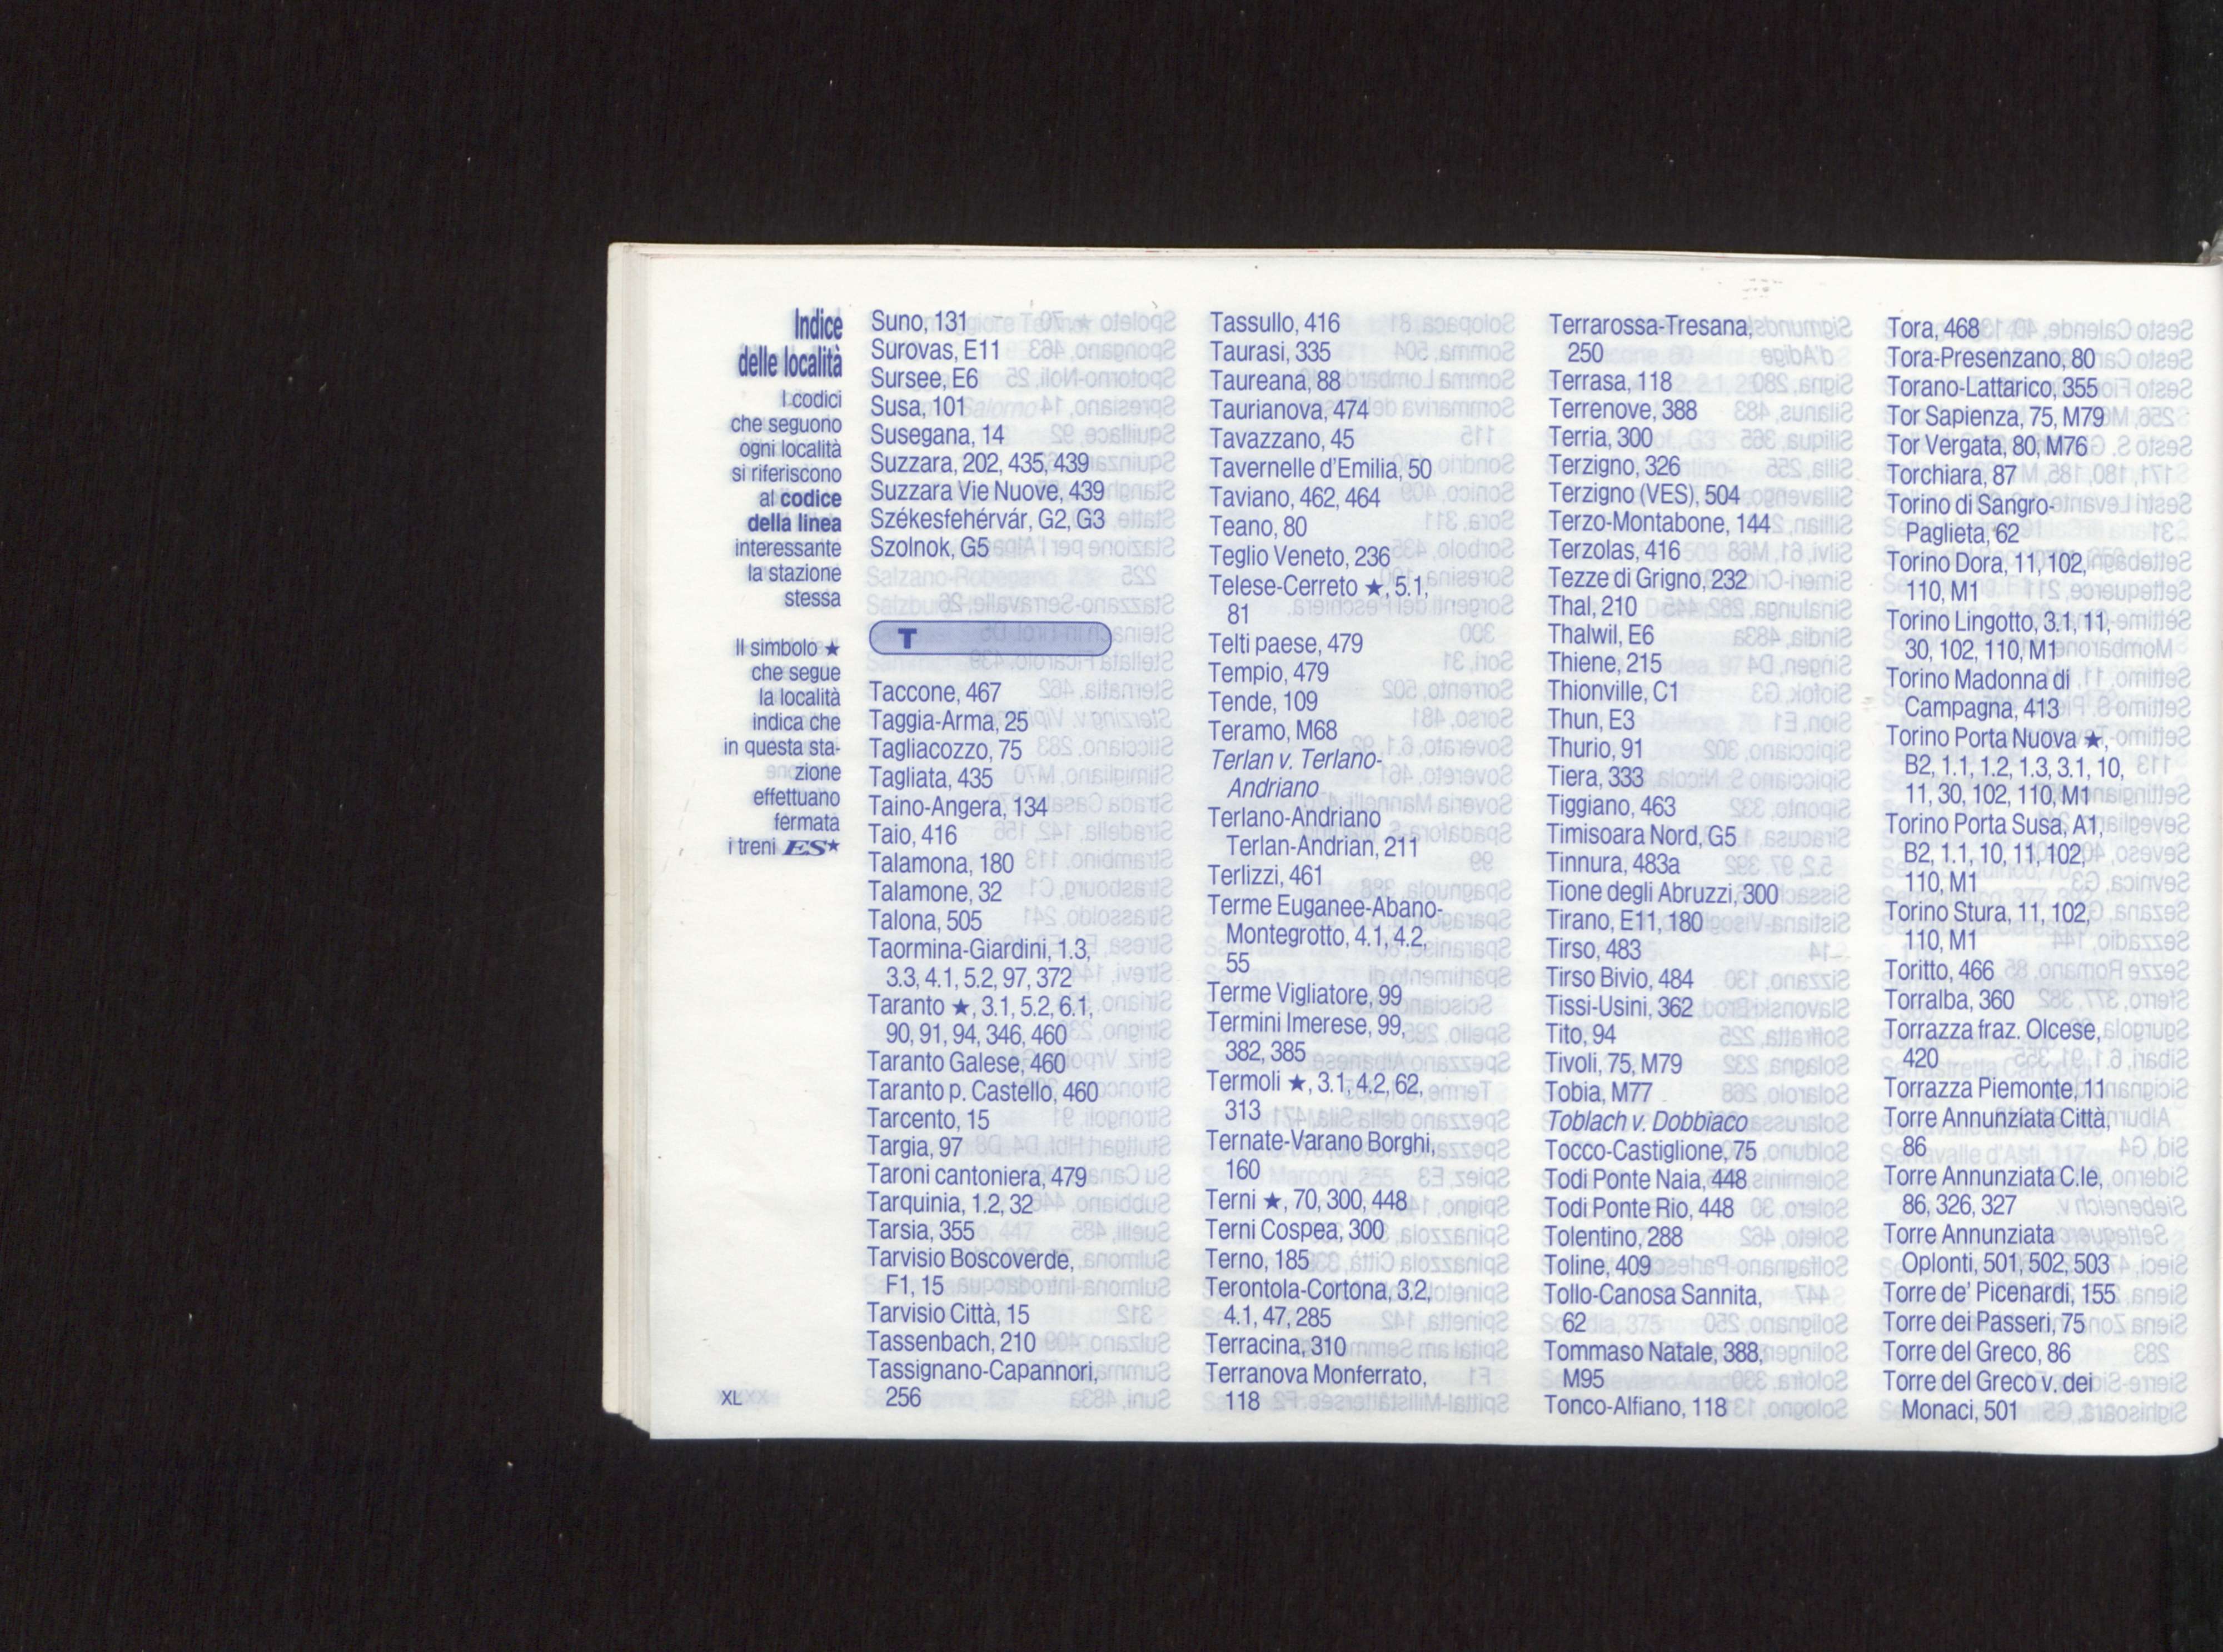 Indice
delle località
I codici
che seguono
ogni località
si riferiscono
al codice
della linea
interessante
la stazione
stessa
Il simbolo ★
che segue
la località
indica che
in questa sta-
zione
effettuano
fermata
i treni ES★
XL
Suno, 131
Surovas, E11
Sursee, E6
Susa, 101
Susegana, 14
Suzzara, 202, 435, 439
Suzzara Vie Nuove, 439
Székesfehérvár, G2, G3
Szolnok, G5
T
Taccone, 467
Taggia-Arma, 25
Tagliacozzo, 75
Tagliata, 435
Taino-Angera, 134
Taio, 416
Talamona, 180
Talamone, 32
Talona, 505
Taormina-Giardini, 1.3,
3.3, 4.1, 5.2, 97, 372
Taranto ★, 3.1, 5.2, 6.1,
90, 91, 94, 346, 460
Taranto Galese, 460
Taranto p. Castello, 460
Tarcento, 15
Targia, 97
Taroni cantoniera, 479
Tarquinia, 1.2, 32
Tarsia, 355
Tarvisio Boscoverde,
F1, 15
Tarvisio Città, 15
Tassenbach, 210
Tassignano-Capannori,
256
Tassullo, 416
Taurasi, 335
Taureana, 88
Taurianova, 474
Tavazzano, 45
Tavernelle d'Emilia, 50
Taviano, 462, 464
Teano, 80
Teglio Veneto, 236
Telese-Cerreto ★, 5.1,
81
Telti paese, 479
Tempio, 479
Tende, 109
Teramo, M68
Terlan v. Terlano-
Andriano
Terlano-Andriano
Terlan-Andrian, 211
Terlizzi, 461
Terme Euganee-Abano-
Montegrotto, 4.1, 4.2,
55
Terme Vigliatore, 99
Termini Imerese, 99,
382, 385
Termoli ★, 3.1, 4.2, 62,
313
Ternate-Varano Borghi,
160
Terni ★, 70, 300, 448
Terni Cospea, 300
Terno, 185
Terontola-Cortona, 3.2,
4.1, 47, 285
Terracina, 310
Terranova Monferrato,
118
Terrarossa-Tresana,
250
Terrasa, 118
Terrenove, 388
Terria, 300
Terzigno, 326
Terzigno (VES), 504
Terzo-Montabone, 144
Terzolas, 416
Tezze di Grigno, 232
Thal, 210
Thalwil, E6
Thiene, 215
Thionville, C1
Thun, E3
Thurio, 91
Tiera, 333
Tiggiano, 463
Timisoara Nord, G5
Tinnura, 483a
Tione degli Abruzzi, 300
Tirano, E11, 180
Tirso, 483
Tirso Bivio, 484
Tissi-Usini, 362
Tito, 94
Tivoli, 75, M79
Tobia, M77
Toblach v. Dobbiaco
Tocco-Castiglione, 75
Todi Ponte Naia, 448
Todi Ponte Rio, 448
Tolentino, 288
Toline, 409
Tollo-Canosa Sannita,
62
Tommaso Natale, 388,
M95
Tonco-Alfiano, 118
Tora, 468
Tora-Presenzano, 80
Torano-Lattarico, 355
Tor Sapienza, 75, M79
Tor Vergata, 80, M76
Torchiara, 87
Torino di Sangro-
Paglieta, 62
Torino Dora, 11, 102,
110, M1
Torino Lingotto, 3.1, 11,
30, 102, 110, M1
Torino Madonna di
Campagna, 413
Torino Porta Nuova ★,
B2, 1.1, 1.2, 1.3, 3.1, 10,
11, 30, 102, 110, M1
Torino Porta Susa, A1,
B2, 1.1, 10, 11, 102,
110, M1
Torino Stura, 11, 102,
110, M1
Toritto, 466
Torralba, 360
Torrazza fraz. Olcese,
420
Torrazza Piemonte, 11
Torre Annunziata Città,
86
Torre Annunziata C.le,
86, 326, 327
Torre Annunziata
Oplonti, 501, 502, 503
Torre de' Picenardi, 155
Torre dei Passeri, 75
Torre del Greco, 86
Torre del Greco v. dei
Monaci, 501